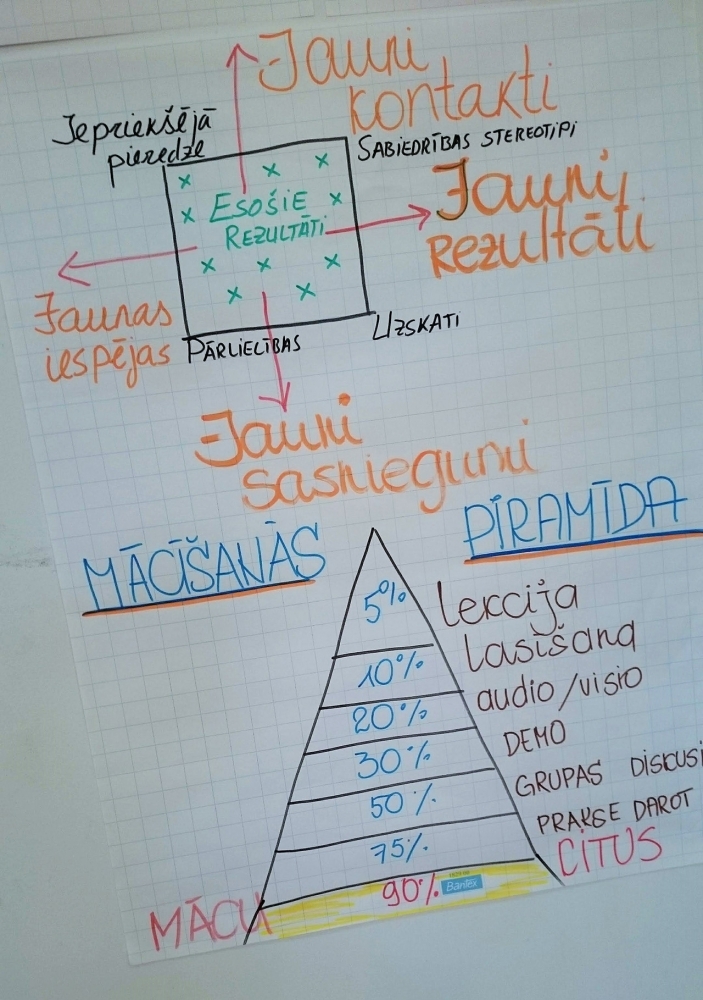 Jauni
kontakti
Iepriekšējā
pieredze
SABIEDRĪBAS STEREOTIPI
ESOŠIE
REZULTĀTI
Jauni
Rezultāti
Jaunas
iespējas
PĀRLIECĪBAS
UZSKATI
Jauni
sasniegumi
MĀCĪŠANĀS
PIRAMĪDA
5% Lekcija
10% Lasīšana
20% audio/visio
30% DEMO
50% GRUPAS DISKUSI
75% PRAKSE DAROT
MĀCU 90% CITUS
Bantex